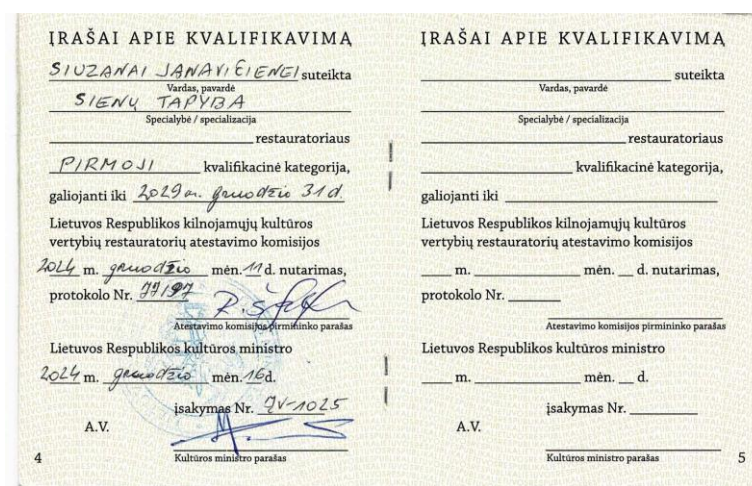 ĮRAŠAI APIE KVALIFIKAVIMĄ
SIUZANAI JANAVIČIENEI suteikta
Vardas, pavardė
SIENŲ TAPYBA
Specialybė / specializacija
restauratoriaus
PIRMOJI kvalifikacinė kategorija,
galiojanti iki 2029 m. gruodžio 31 d.
Lietuvos Respublikos kilnojamųjų kultūros
vertybių restauratorių atestavimo komisijos
2024 m. gruodžio mėn. 11 d. nutarimas,
protokolo Nr.
Atestavimo komisijos pirmininko parašas
Lietuvos Respublikos kultūros ministro
2024 m. gruodžio mėn. 16 d.
įsakymas Nr. ĮV-1025
A.V.
Kultūros ministro parašas
4
ĮRAŠAI APIE KVALIFIKAVIMĄ
suteikta
Vardas, pavardė
Specialybė / specializacija
restauratoriaus
kvalifikacinė kategorija,
galiojanti iki
Lietuvos Respublikos kilnojamųjų kultūros
vertybių restauratorių atestavimo komisijos
m. mėn. d. nutarimas,
protokolo Nr.
Atestavimo komisijos pirmininko parašas
Lietuvos Respublikos kultūros ministro
m. mėn. d.
įsakymas Nr.
A.V.
Kultūros ministro parašas
5